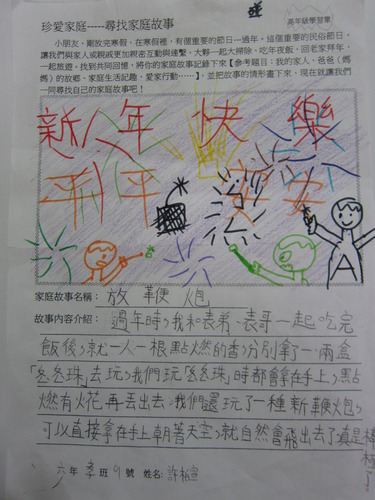 高年級學習單
珍愛家庭-----尋找家庭故事
小朋友，剛放完寒假，在寒假裡，有個重要的節日—過年。這個重要的民俗節日，
讓我們與家人或親戚更加親密互動與連繫，大夥一起大掃除、吃年夜飯、回老家拜年、
一起旅遊，找到共同回憶，將你的家庭故事記錄下來【參考題目：我的家人、爸爸(媽
媽)的故鄉、家庭生活記趣、愛家行動……】，並把故事的情形畫下來，現在就讓我們
一同尋找自己的家庭故事吧！
新年快樂
平安
家庭故事名稱：放鞭炮
故事內容介紹：過年時，我和表弟、表哥一起吃完
飯後，就一人一根點燃的香，分別拿了一兩盒
「彡彡珠」去玩，我們玩「彡彡珠」時都會拿在手上，點
燃有火花再丟出去，我們還玩了一種新鞭炮，
可以直接拿在手上朝著天空，就自然會飛出去了真是棒
極了
六年孝班9號 姓名：許